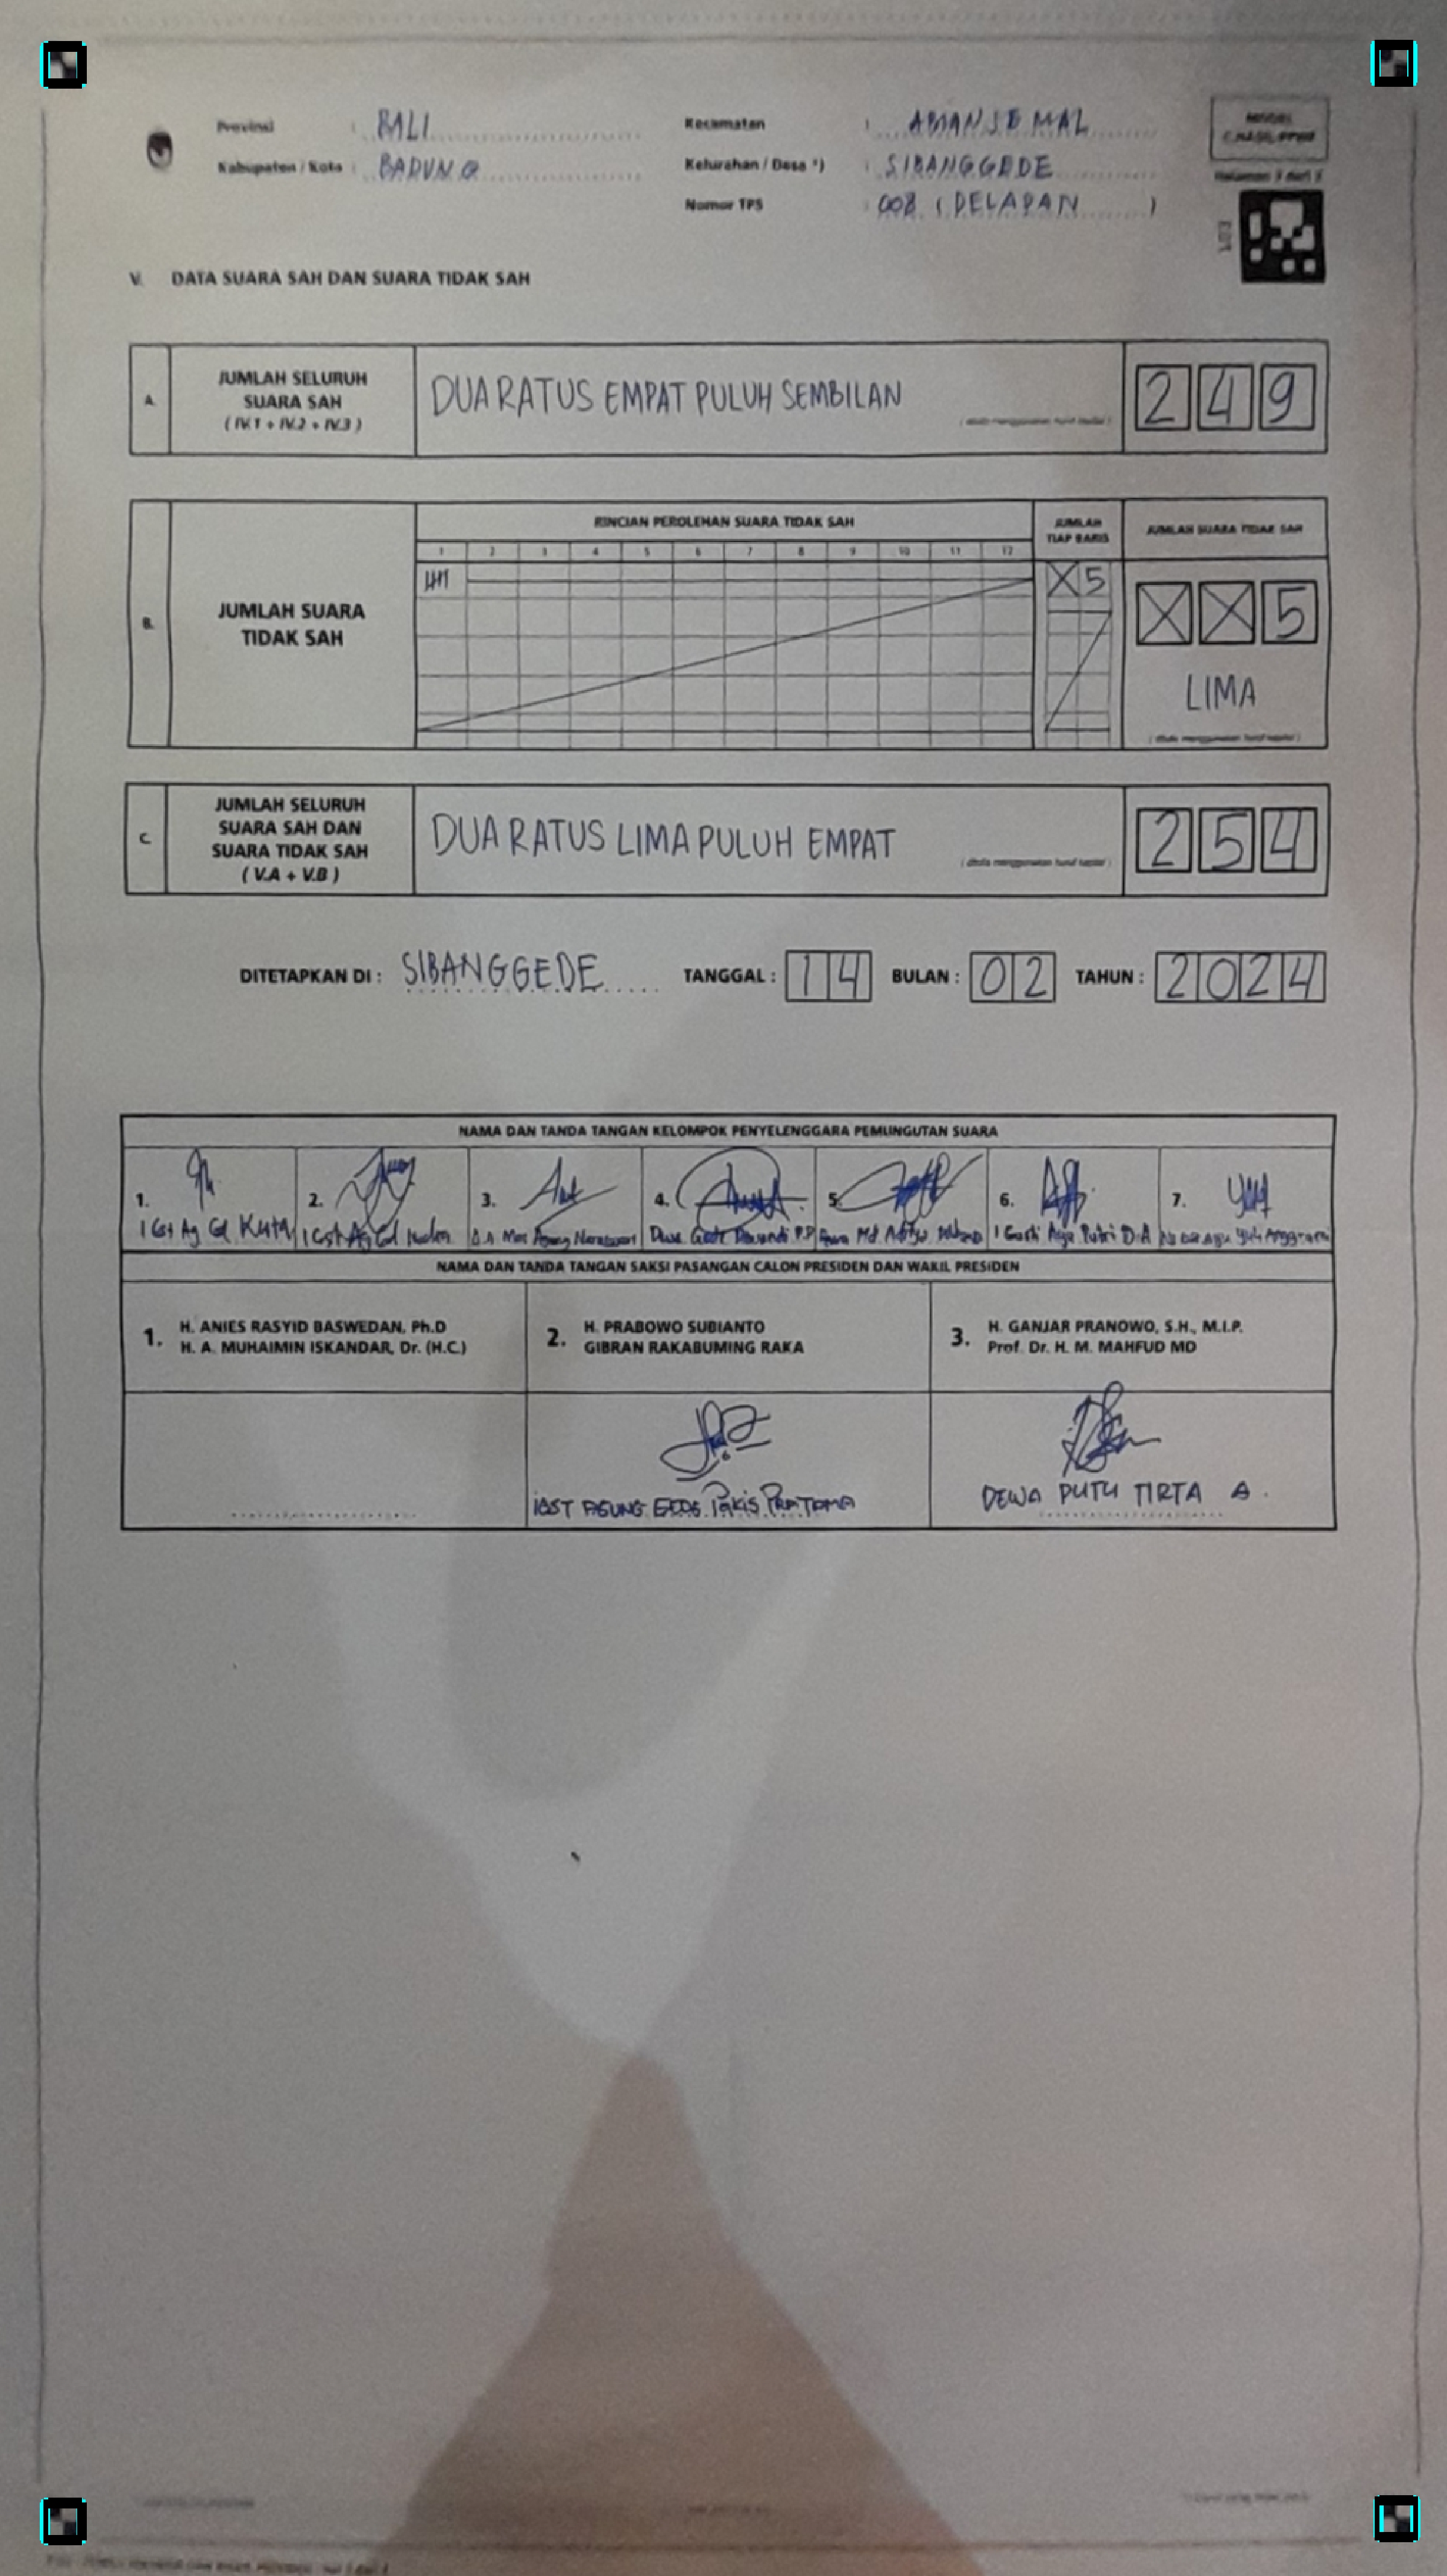 Provinsi : BALI
Kabupaten / Kota : BADUNG
Kecamatan : ABIANSEMAL
Kelurahan / Desa *) : SIBANGGEDE
Nomor TPS : 008 ( DELAPAN )
MODEL
C.HASIL-PPWP
Halaman 3 dari 3
V. DATA SUARA SAH DAN SUARA TIDAK SAH
A. JUMLAH SELURUH
SUARA SAH
( IV.1 + IV.2 + IV.3 )
DUA RATUS EMPAT PULUH SEMBILAN
( ditulis menggunakan huruf kapital )
2 4 9
B. JUMLAH SUARA
TIDAK SAH
RINCIAN PEROLEHAN SUARA TIDAK SAH
1 2 3 4 5 6 7 8 9 10 11 12
JUMLAH
TIAP BARIS
X 5
JUMLAH SUARA TIDAK SAH
X X 5
LIMA
( ditulis menggunakan huruf kapital )
C. JUMLAH SELURUH
SUARA SAH DAN
SUARA TIDAK SAH
( V.A + V.B )
DUA RATUS LIMA PULUH EMPAT
( ditulis menggunakan huruf kapital )
2 5 4
DITETAPKAN DI : SIBANGGEDE TANGGAL : 14 BULAN : 02 TAHUN : 2024
NAMA DAN TANDA TANGAN KELOMPOK PENYELENGGARA PEMUNGUTAN SUARA
1. 2. 3. 4. 5. 6. 7.
I Gst Ag Gd Kuta
I Gst Ag Gd
I Gusti Ayu Putri D.A
NAMA DAN TANDA TANGAN SAKSI PASANGAN CALON PRESIDEN DAN WAKIL PRESIDEN
1. H. ANIES RASYID BASWEDAN, Ph.D
H. A. MUHAIMIN ISKANDAR, Dr. (H.C.)
2. H. PRABOWO SUBIANTO
GIBRAN RAKABUMING RAKA
3. H. GANJAR PRANOWO, S.H., M.I.P.
Prof. Dr. H. M. MAHFUD MD
IGST AGUNG GEDE PAKIS PRATAMA
DEWA PUTU TIRTA A.